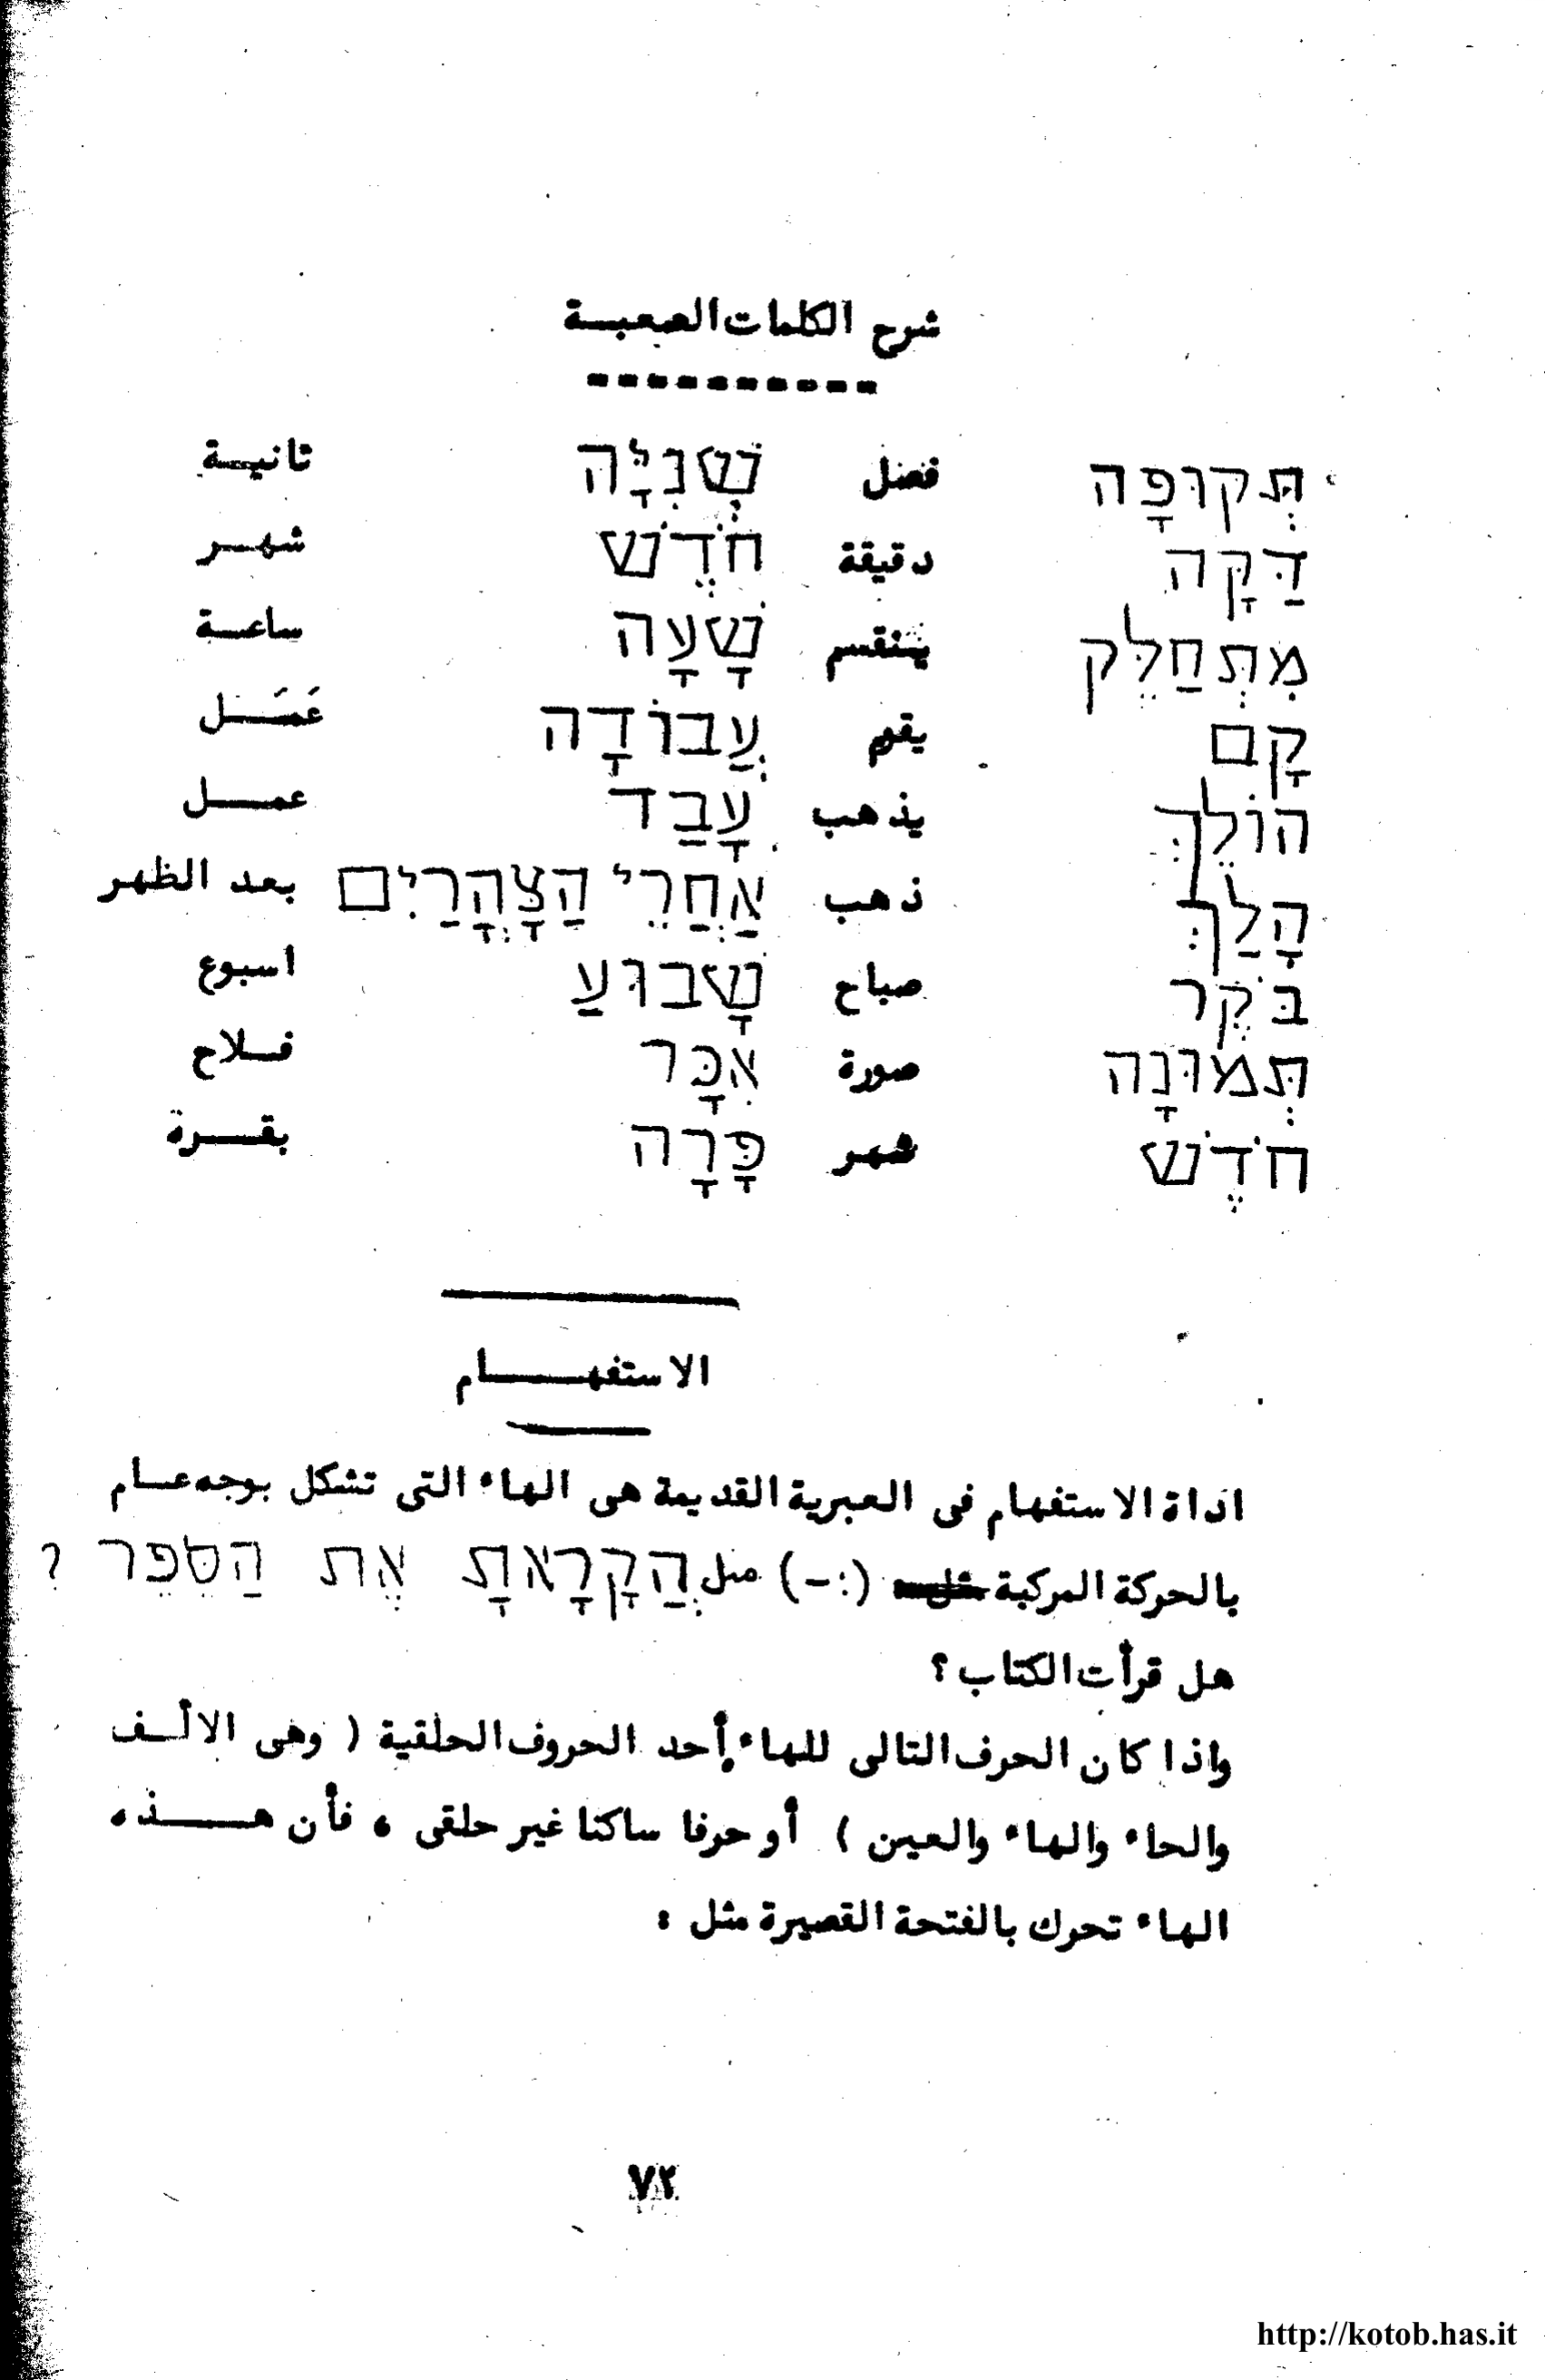 شرح الكلمات الصعبة
תְּקוּפָה فصل שְׁנִיָּה ثانية
דַּקָּה دقيقة חֹדֶשׁ شهر
מִתְחַלֵּק ينقسم שָׁעָה ساعة
קָם يقوم עֲבוֹדָה عَمَل
הוֹלֵךְ يذهب עָבַד عمل
הָלַךְ ذهب אַחֲרֵי הַצָּהֳרַיִם بعد الظهر
בֹּקֶר صباح שָׁבוּעַ اسبوع
תְּמוּנָה صورة אִכָּר فلاح
חֹדֶשׁ شهر פָּרָה بقرة
الاستفهام
اداة الاستفهام فى العبرية القديمة هى الهاء التى تشكل بوجه عام
بالحركة المركبة (-:) مثل הֲקָרָאתָ אֶת הַסֵּפֶר ?
هل قرأت الكتاب ؟
واذا كان الحرف التالى للهاء أحد الحروف الحلقية ( وهى الالف
والحاء والهاء والعين ) أو حرفا ساكنا غير حلقى ، فأن هذه
الهاء تحرك بالفتحة القصيرة مثل :
٧٢
http://kotob.has.it